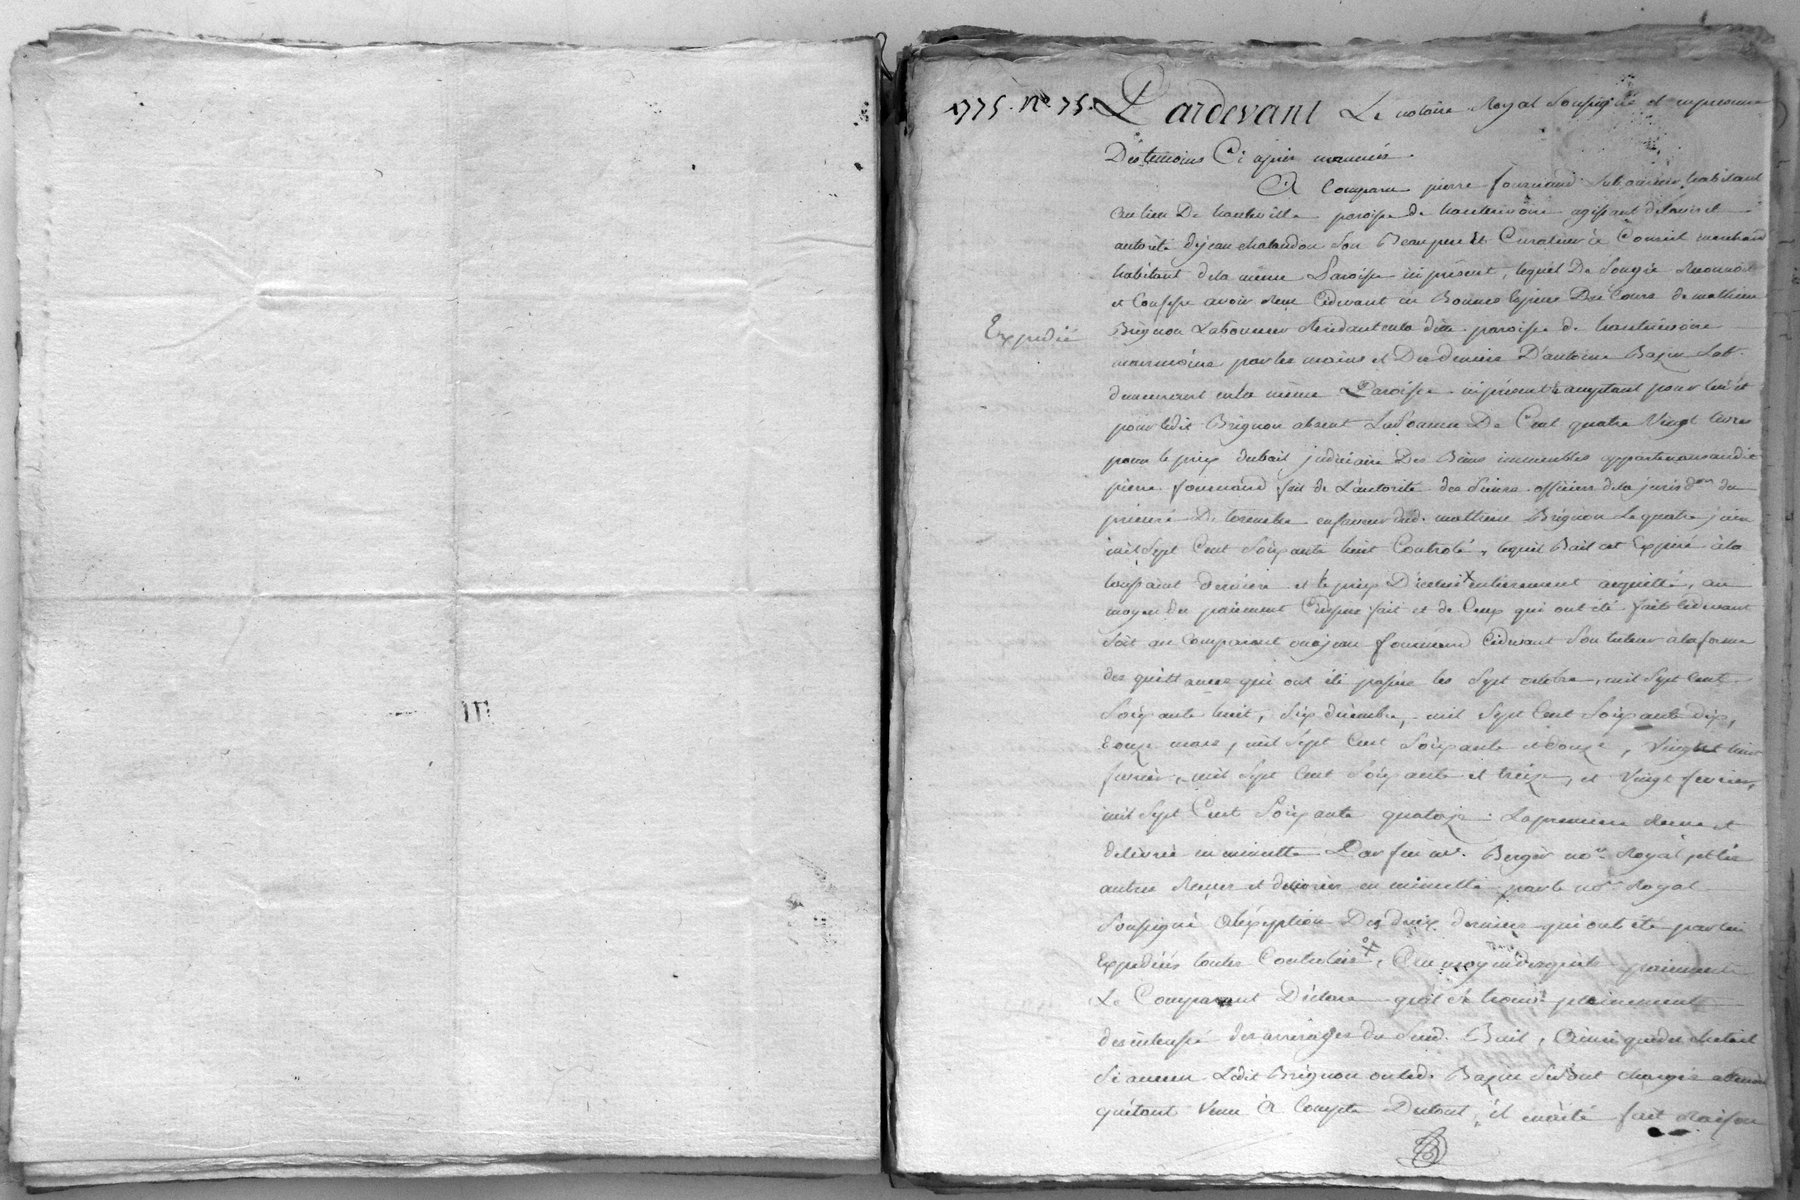 1775. No. 75. Pardevant Le notaire Royal Soussigné et en presence
Des temoins Ci après nommés.
A Comparu pierre fournand Laboureur habitant
au lieu De hauteville paroisse de hauterivoire agissant de l'avis et
autorité de jean chatandon Son Beaupere Et Curateur à Conseil marchand
habitant de la même Paroisse ici présent, lequel De Son gré Reconnoit
et Confesse avoir Reçu Cidevant en Bonnes Espèces De Cours de mathieu
Expedié
Brignon Laboureur Residant en la dite paroisse de hauterivoire
néanmoins par les mains et Des deniers D'antoine Bazin Lab.
demeurant en la même Paroisse ici présent & acceptant pour lui et
pour ledit Brignon absent La Somme De Cent quatre Vingt livres
pour le prix du bail judiciaire Des Biens immeubles appartenans audit
pierre fournand fait de L'autorité des Sieurs officiers de la jurisd.on du
prieuré De en faveur dud. mathieu Brignon Le quatre juin
mil Sept Cent Soixante huit Controlé, lequel Bail est Expiré à la
toussaint derniere et le prix D'icelui entierement acquitté, au
moyen du paiement Cidessus fait et de Ceux qui ont été faits cidevant
Soit au Comparant ou à jean fournand Cidevant Son tuteur à la forme
des quittances qui ont été passées les Sept octobre, mil Sept Cent
Soixante huit, Six décembre, mil Sept Cent Soixante dix,
Douze mars, mil Sept Cent Soixante et douze, Vingt huit
fevrier, mil Sept Cent Soixante et treize, et Vingt fevrier,
mil Sept Cent Soixante quatorze: La premiere Reçue et
delivrée en minutte Par feu me. Berger no.re Royal, et les
autres Reçues et delivrées en minutte par le no.re Royal
Soussigné à l'exception Des deux dernieres qui ont été par lui
Expediées toutes Controlées, Au moyen desquels paiements
Le Comparant Déclare qu'il Se trouve pleinement
desinteressé des arrerages du Susd. Bail, Ainsi que du chetail
Si aucun Ledit Brignon ou led. Bazin Se Sont chargés attendu
qu'étant Venu à Compte Du tout, il en a été fait Raison